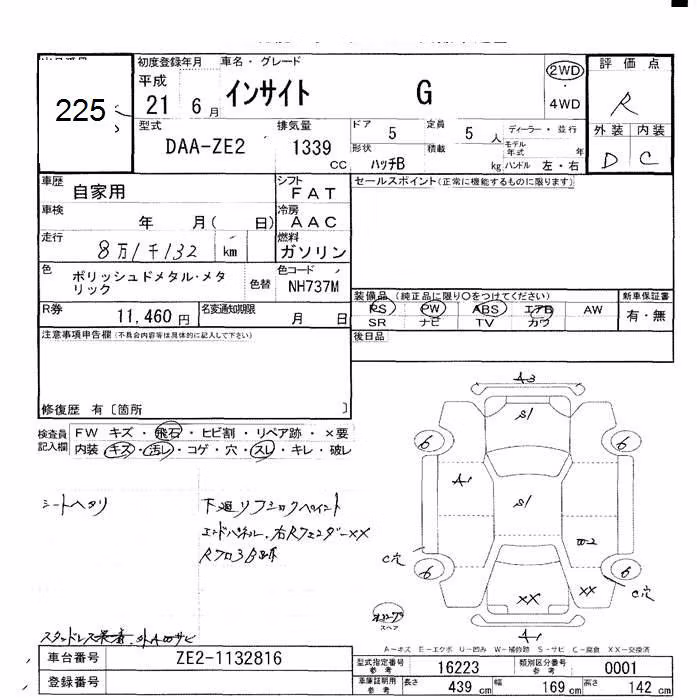 225
初度登録年月
平成
21 6 月
車名・グレード
インサイト G
2WD
・
4WD
評価点
R
外装 内装
D C
型式
DAA-ZE2
排気量
1339
CC
ドア 5
定員 5 人
ディーラー・並行
形状
ハッチB
積載 kg
モデル年式 年
ハンドル 左・右
車歴
自家用
シフト
FAT
セールスポイント(正常に機能するものに限ります)
車検
年 月( 日)
冷房
AAC
走行
8万1千132 km
燃料
ガソリン
色
ポリッシュドメタル・メタリック
色替
色コード
NH737M
装備品 (純正品に限り○をつけてください)
PS PW ABS エアB AW
SR ナビ TV カワ
新車保証書
有・無
R券
11,460 円
名変通知期限
月 日
後日品
注意事項申告欄(不具合内容等は具体的に記入して下さい)
修復歴 有〔箇所 〕
検査員記入欄
FW キズ・飛石・ヒビ割・リペア跡・×要
内装 キズ・汚レ・コゲ・穴・スレ・キレ・破レ
シートヘタリ
下廻リフロックペイント
エンドパネル、右Rフェンダー××
Rフロア
A3
S1
6
6
A1
S1
W2
C穴
6
6
XX
XX
C穴
スペア
A1
スタッドレス
A-キズ E-エクボ U-凹み W-補修跡 S-サビ C-腐食 XX-交換済
車台番号
ZE2-1132816
登録番号
型式指定番号
参考
16223
類別区分番号
参考
0001
車庫証明用
参考
長さ 439 cm
幅 169 cm
高さ 142 cm